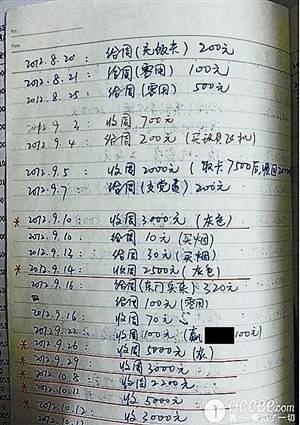 2012.8.20 : 给周(充饭卡) 200元
2012.8.21 : 给周(零用) 100元
2012.8.25 : 给周(零用) 500元
2012.9.3 : 收周 700元
2012.9.4 : 给周 200元(买 飞机)
2012.9.5 : 收周 2000元(取卡7500后,
2012.9.7 : 给周( ) 200元
* 2012.9.10 : 收周 3000元(灰色)
2012.9.10 : 给周 10元(买烟)
2012.9.13 : 给周 30元(买烟)
* 2012.9.14 : 收周 2500元(灰色)
2012.9.16 : 给周(东门买衣) 320元
给周(100元)(零用)
2012.9.16 : 收周 70元
2012.9.22 : 收周 100元( 100元)
* 2012.9.26 : 收周 5000元(灰)
* 2012.9.29 : 收周 3000元
* 2012.10.8 : 收周 2200元
* 2012.10.11 : 收周 5000元
2012.10.12 收周 3000元